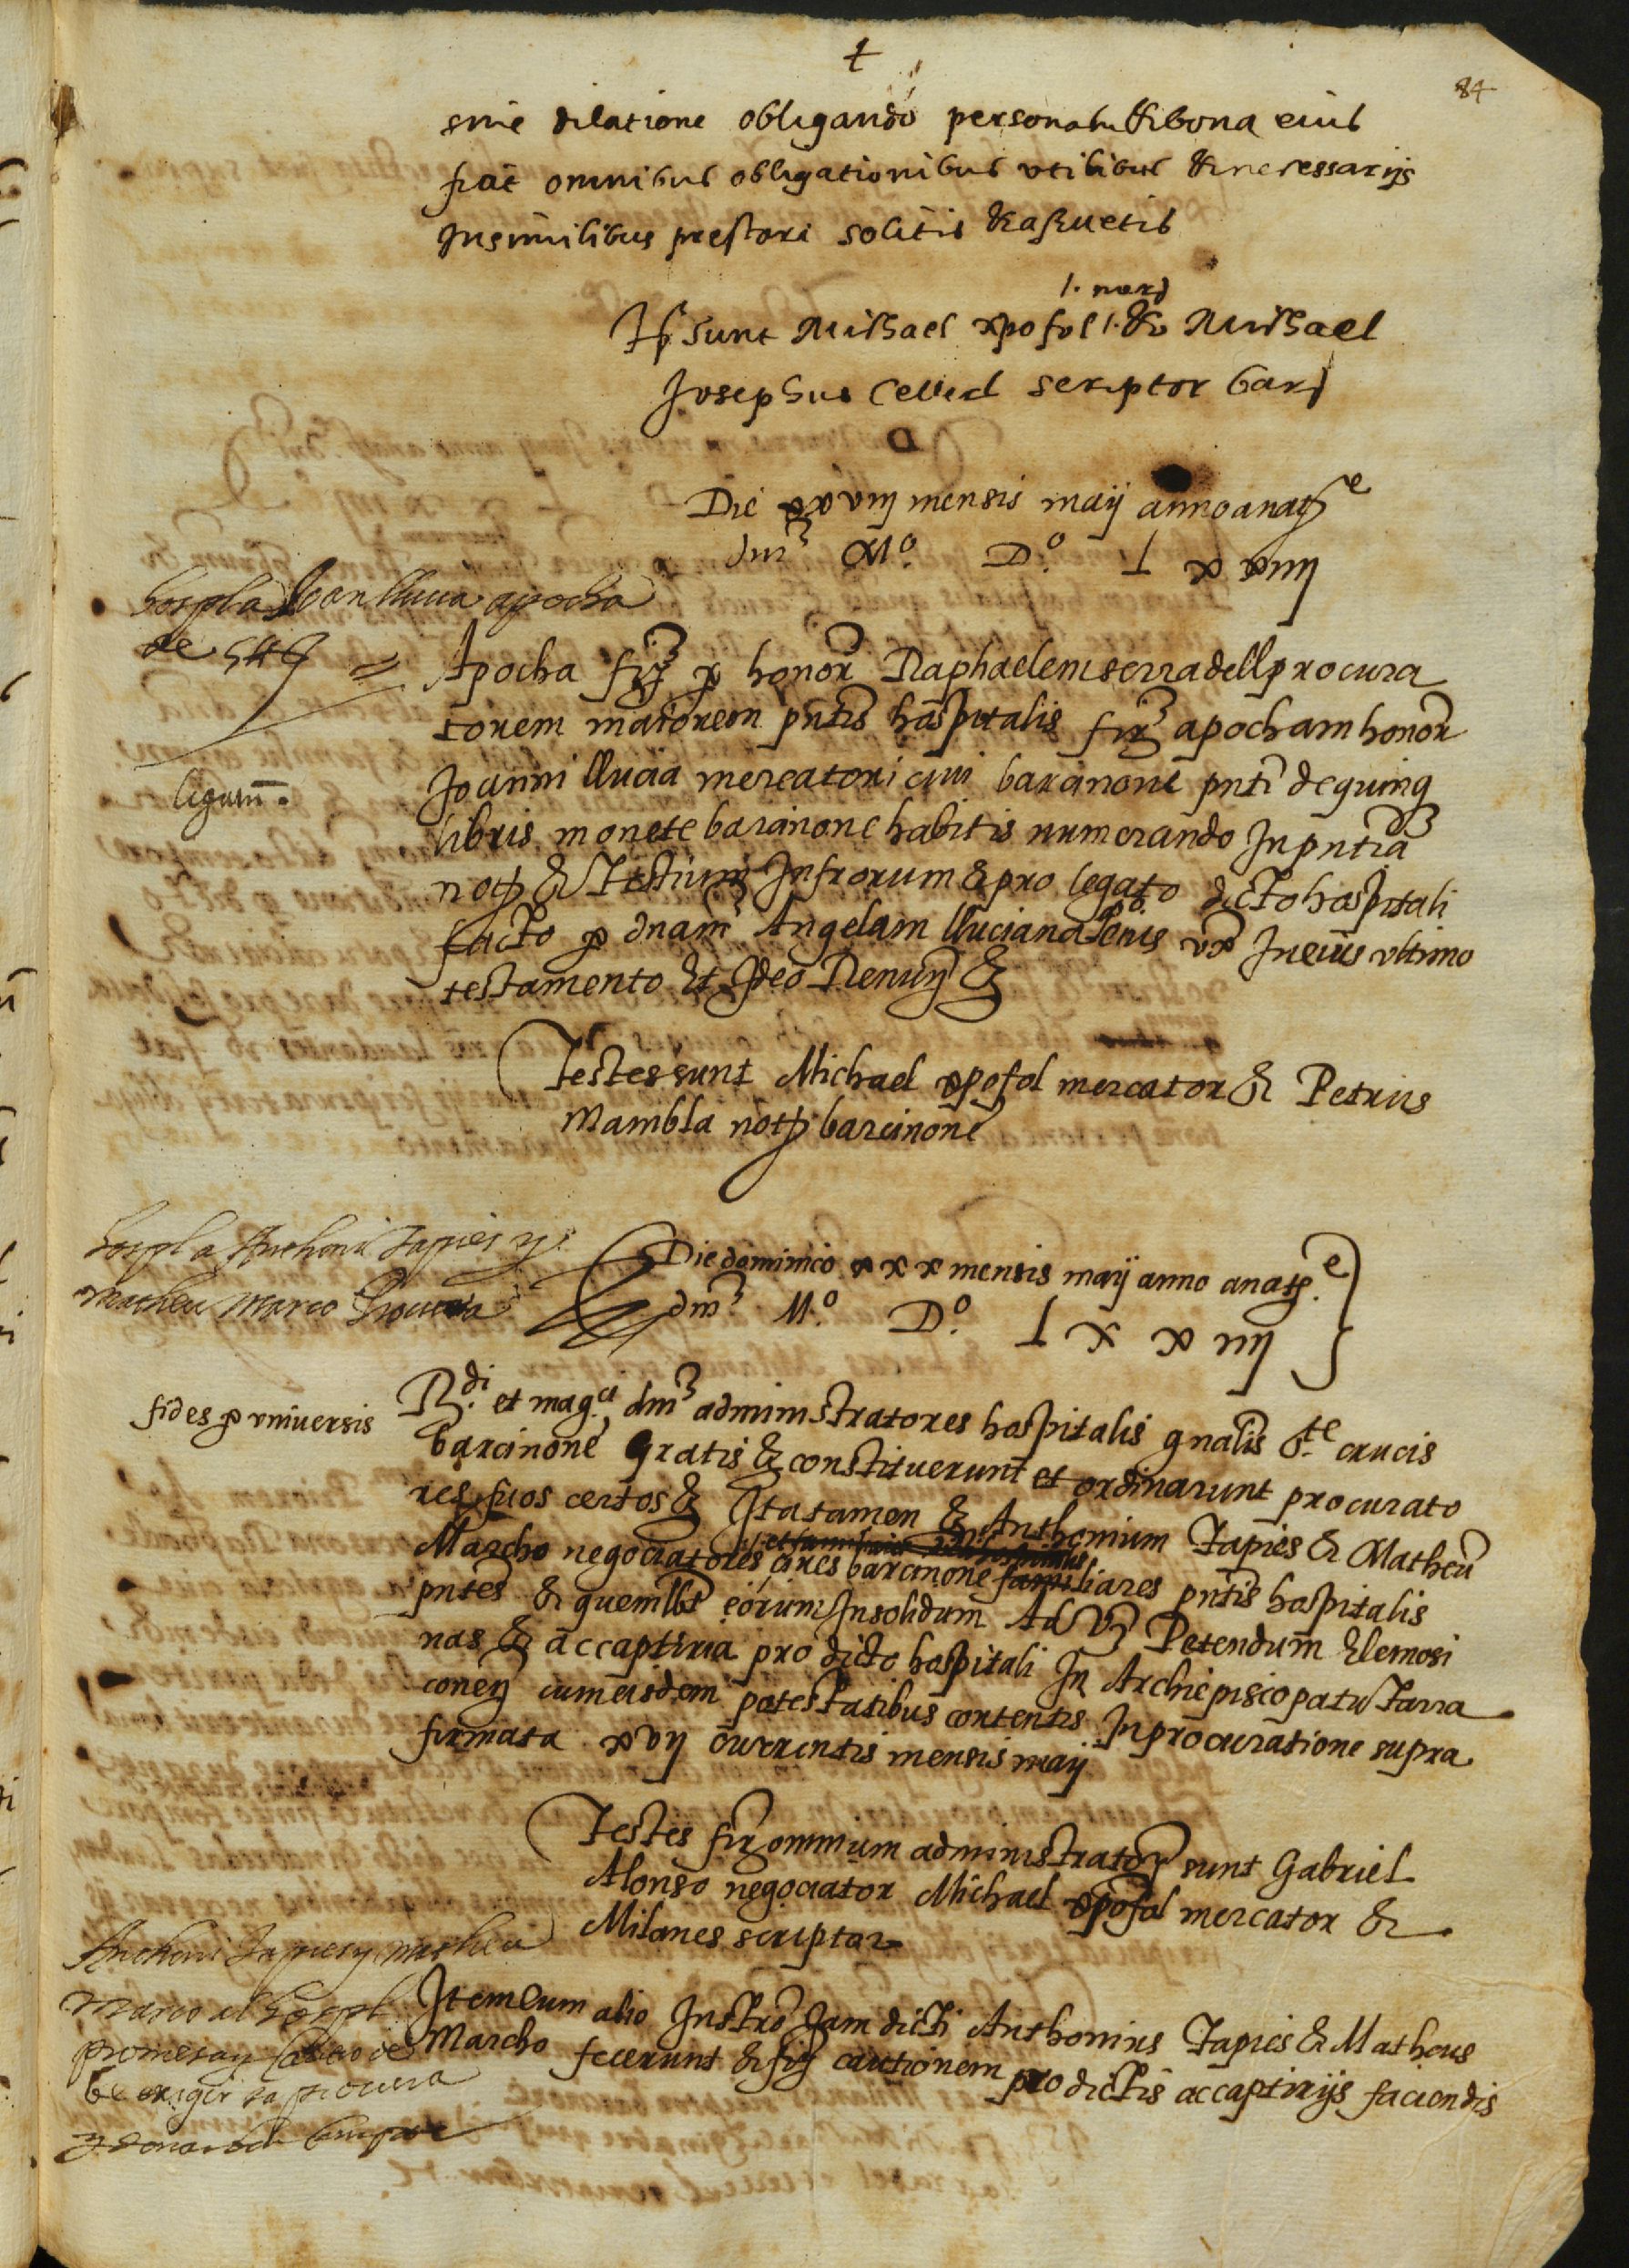 +
84
sine dilatione obligando personam & bona eius
fiat omnibus obligationibus utilibus & necessarijs
In similibus prestari solitis & assuetis
/. merº
Ts sunt Michael xpofol /. & Michael
Josephus scriptor barº
Die xxviiij mensis maij anno a naty.e
dnj M.º D.º Lxxiiij
hospla Joan llucia apocha
de 5 ℔
Apocha fir. p honor. Raphaelem serradell procura
torem maiorem pntis hospitalis fir. apocham honor.
ligatum.
Joanni llucia mercatori civi barcinone pnti de quinq
libris monete barcinone habitis numerando In pntia
noty & testium Infrorum & pro legato dicto hospitali
facto p dnam Angelam lluciana uxor In eius ultimo
testamento Et Ideo Renun. &
Testes sunt Michael xpofol mercator & Petrus
Mambla noty barcinone
hospla Anthoni Tapies y
Matheu Marco Procura
Die dominico xxx mensis maij anno a naty.e
dnj M.º D.º Lxxiiij
fides p universis
R.di et mag.ci dnj administratores hospitalis gnalis S.te crucis
barcinone Gratis & constituerunt et ordinarunt procurato
res suos certos & Ita tamen & Anthonium Tapies & Matheu
Marcho negociatores cives barcinone familiares pntis hospitalis
pntes & quemlbt eorum Insolidum Ad Petendum Elemosi
nas & accaptiria pro dicto hospitali In Archiepiscopatu Tarra
coneñ cum eisdem potestatibus contentis In procuratione supra
firmata xvij currentis mensis maij
Testes fir. omnium administrator. sunt Gabriel
Alonso negociator Michael xpofol mercator &
Milanes scriptor
Anthoni Tapies y Matheu
Marco al hospl
promesa y
be exigir sa procura
y donar bon compte
Item cum alio Instro Jam dicti Anthonius Tapies & Matheus
Marcho fecerunt & fir. cautionem pro dictis accaptirijs faciendis